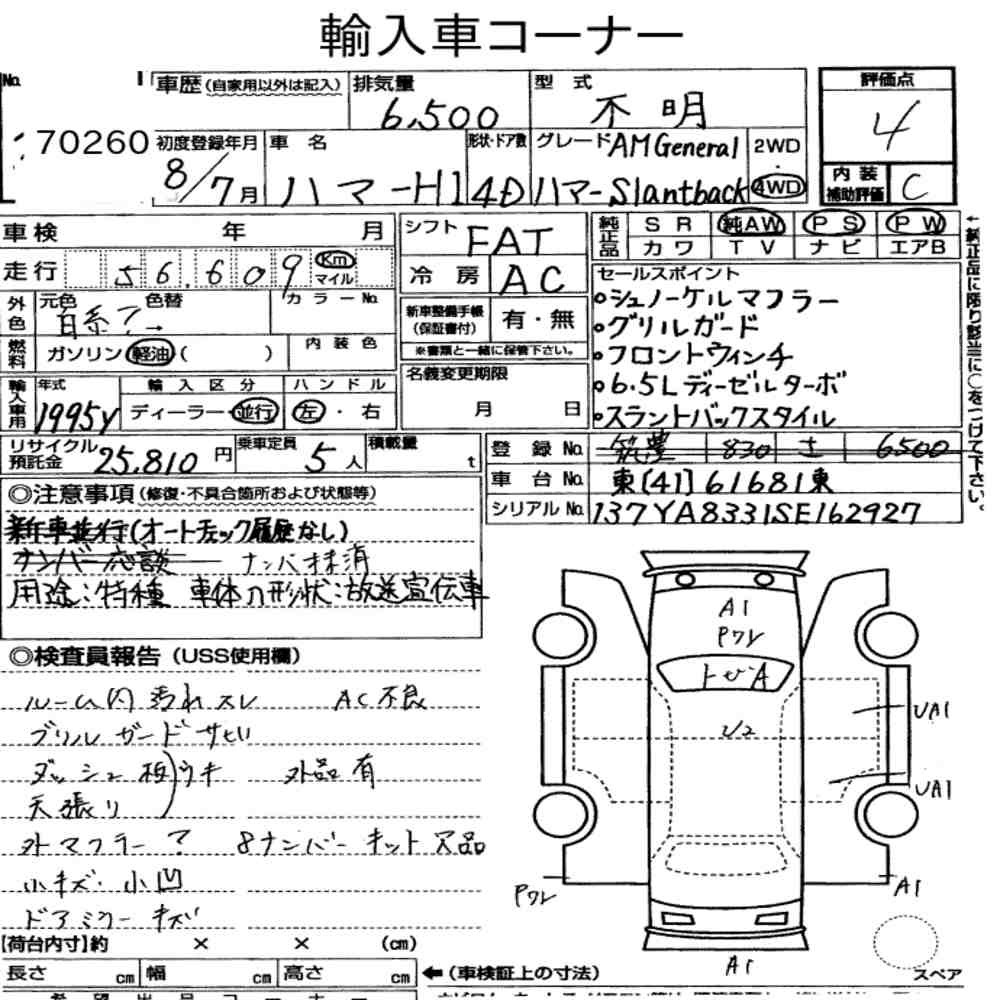 輸入車コーナー
No. 70260
車歴(自家用以外は記入)
排気量 6,500
型 式 不明
評価点 4
初度登録年月 8/7月
車名 ハマーH1
形状・ドア数 4D
グレード AM General ハマー Slantback
2WD ・ 4WD
内装補助評価 C
車検 年 月
シフト FAT
純正品 SR 純AW PS PW
カワ TV ナビ エアB
←純正品に限り影当に○をつけて下さい。
走行 56,609 Km マイル
冷房 AC
セールスポイント
○シュノーケルマフラー
○グリルガード
○フロントウィンチ
○6.5Lディーゼルターボ
○スラントバックスタイル
外色 元色 白系? → 色替 カラーNo.
新車整備手帳(保証書付) 有・無
※書類と一緒に保管下さい。
燃料 ガソリン 軽油 ( ) 内装色
名義変更期限 月 日
輸入車用 年式 1995y
輸入区分 ディーラー・並行
ハンドル 左・右
リサイクル預託金 25,810円
乗車定員 5人
積載量 t
登録No. 筑豊 830 さ 6500
車台No. 東[41]61681東
シリアルNo. 137YA8331SE162927
◎注意事項(修復・不具合箇所および状態等)
新車並行(オートチェック履歴なし)
ナンバー応談 ナンバ抹消
用途:特種 車体の形状:放送宣伝車
◎検査員報告(USS使用欄)
ルーム内 汚れ スレ AC不良
グリル ガード サビ
ダッシュ板)ウキ 外品有
天張り
外マフラー ? 8ナンバー キット欠品
小キズ・小凹
ドアミラー キズ
A1
Pワレ
トビA
UA1
UA1
Pワレ
A1
A1
【荷台内寸】約 × × (cm)
長さ cm 幅 cm 高さ cm
←(車検証上の寸法)
スペア